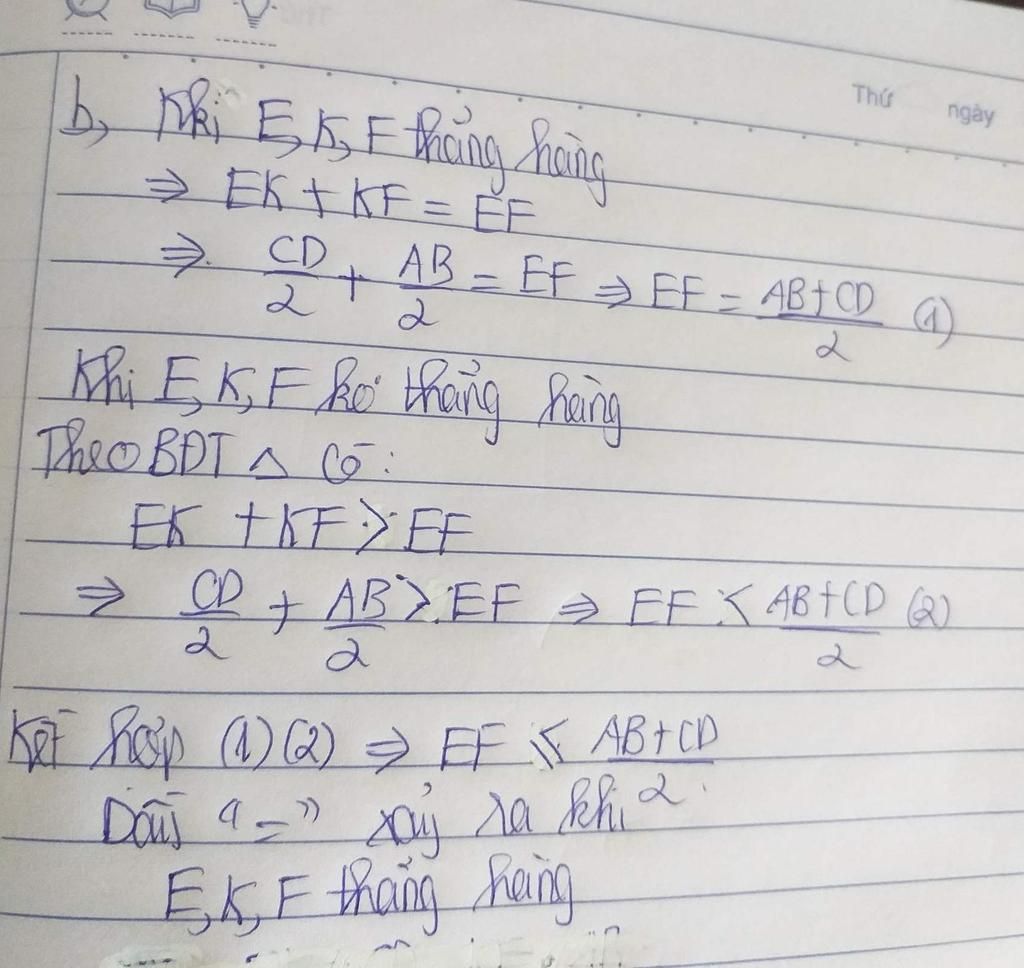 Thứ ngày
b, Khi E, K, F thẳng hàng
⇒ EK + KF = EF
⇒ CD/2 + AB/2 = EF ⇒ EF = AB+CD/2 (1)
Khi E, K, F ko thẳng hàng
Theo BĐT Δ có:
EK + KF > EF
⇒ CD/2 + AB/2 > EF ⇒ EF < AB+CD/2 (2)
Kết hợp (1) (2) ⇒ EF ⩽ AB+CD/2
Dấu "=" xảy ra khi
E, K, F thẳng hàng